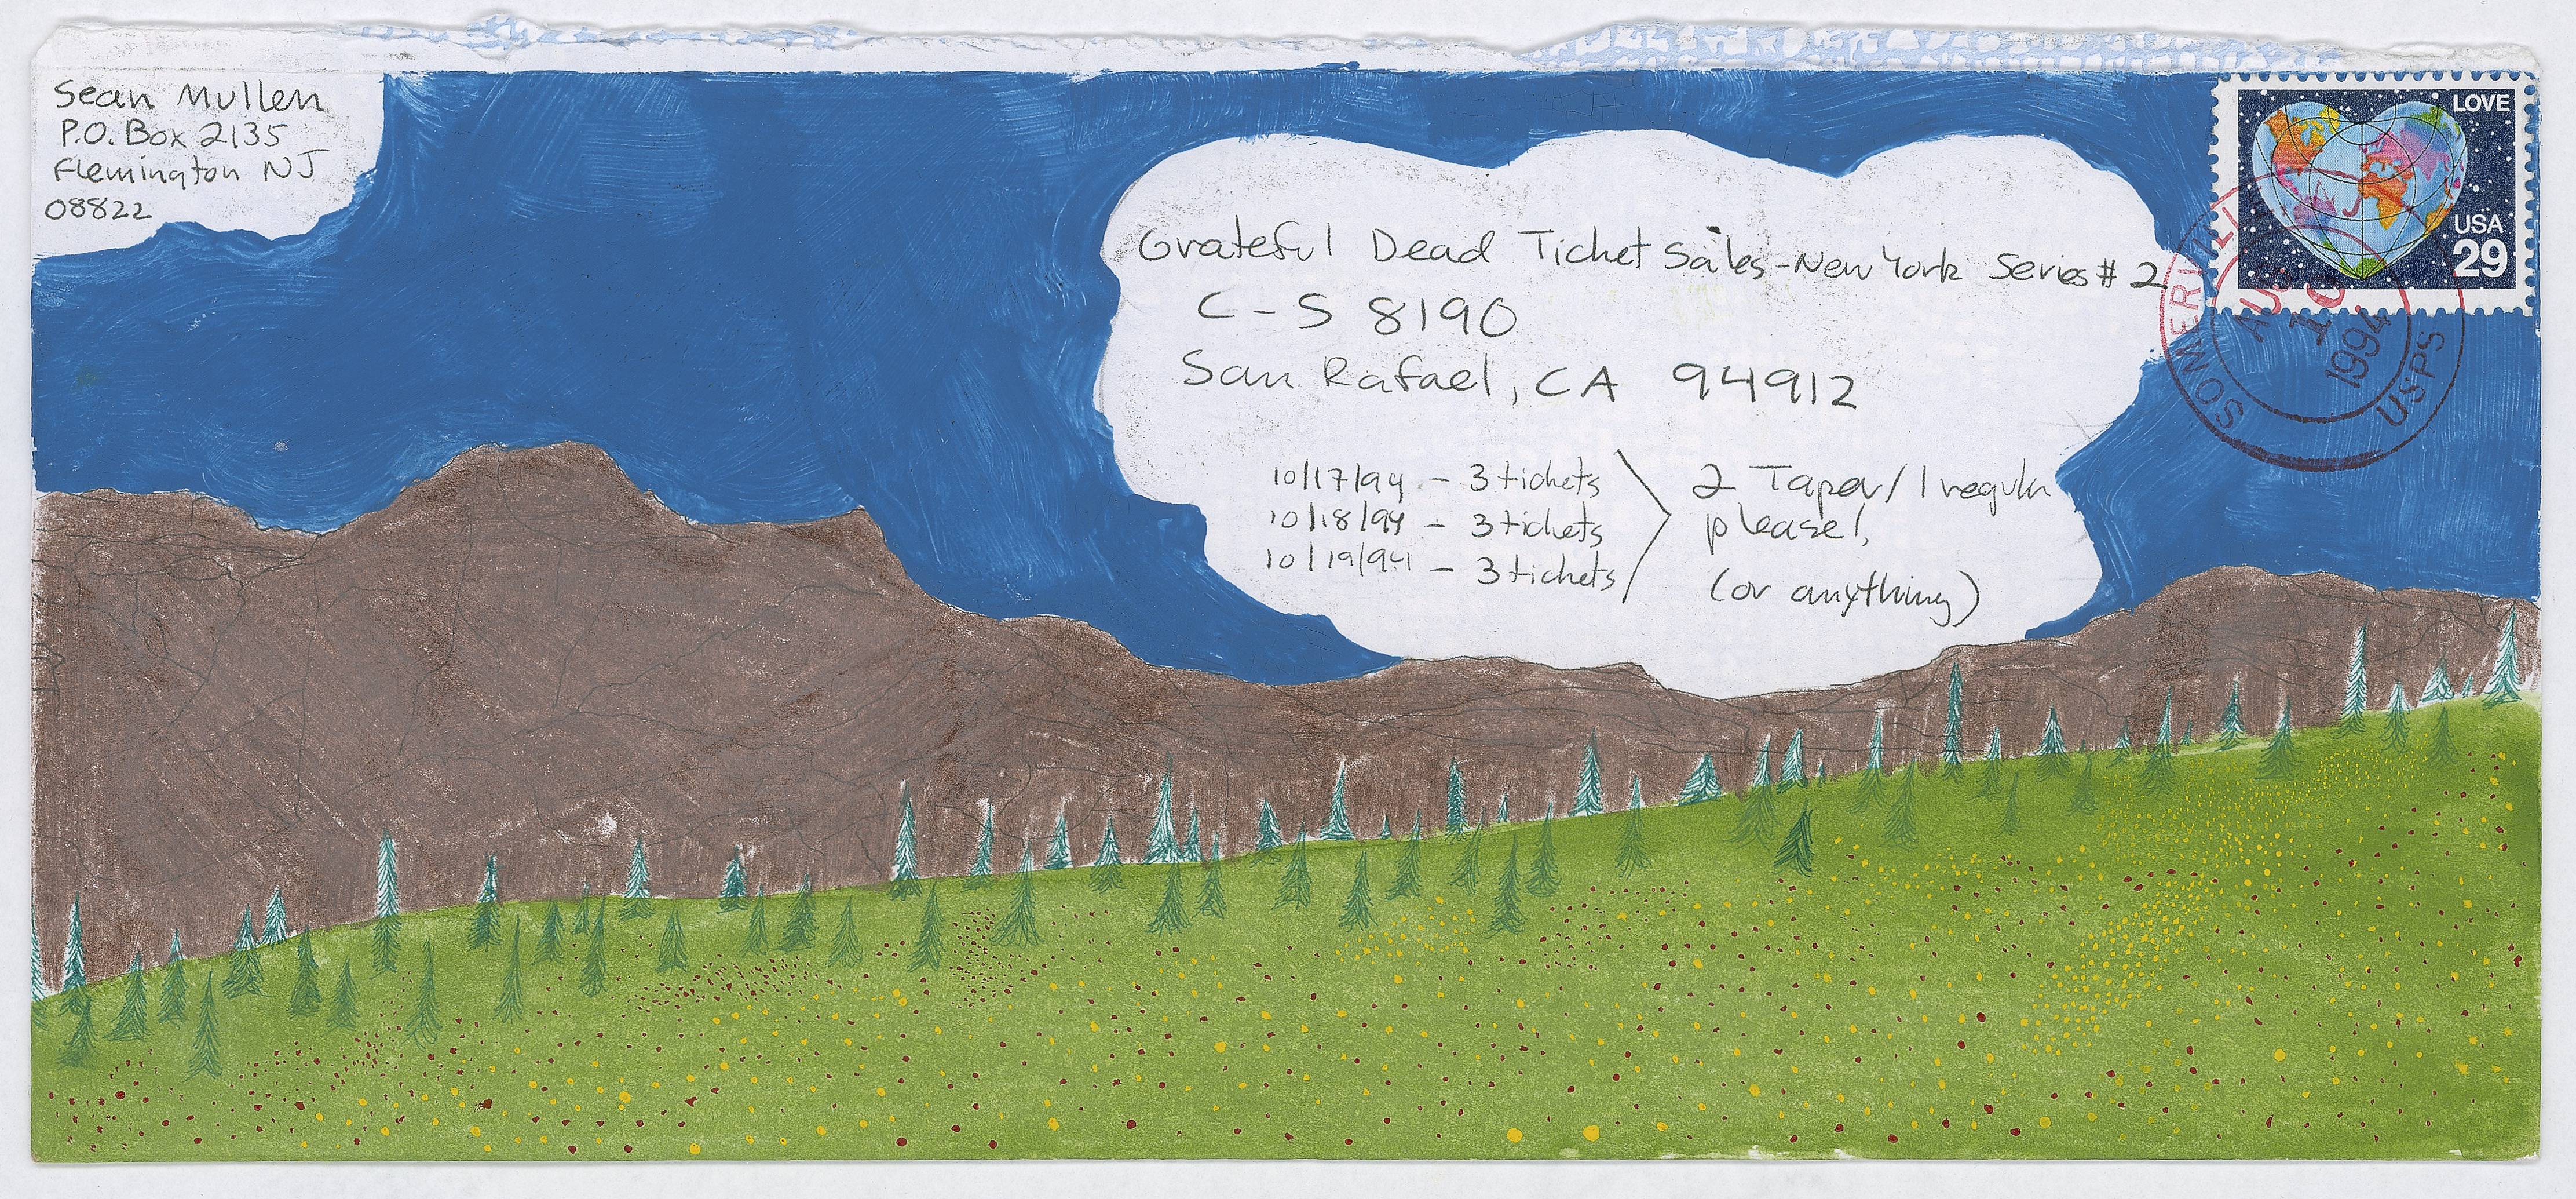 Sean Mullen
P.O. Box 2135
Flemington NJ
08822
LOVE
USA
29
SOMERVILLE NJ
AUG
10
1994
USPS
Grateful Dead Ticket Sales - New York Series # 2
C - S 8190
San Rafael, CA 94912
10/17/94 - 3 tickets
10/18/94 - 3 tickets
10/19/94 - 3 tickets
2 Taper / 1 regular
please!
(or anything)